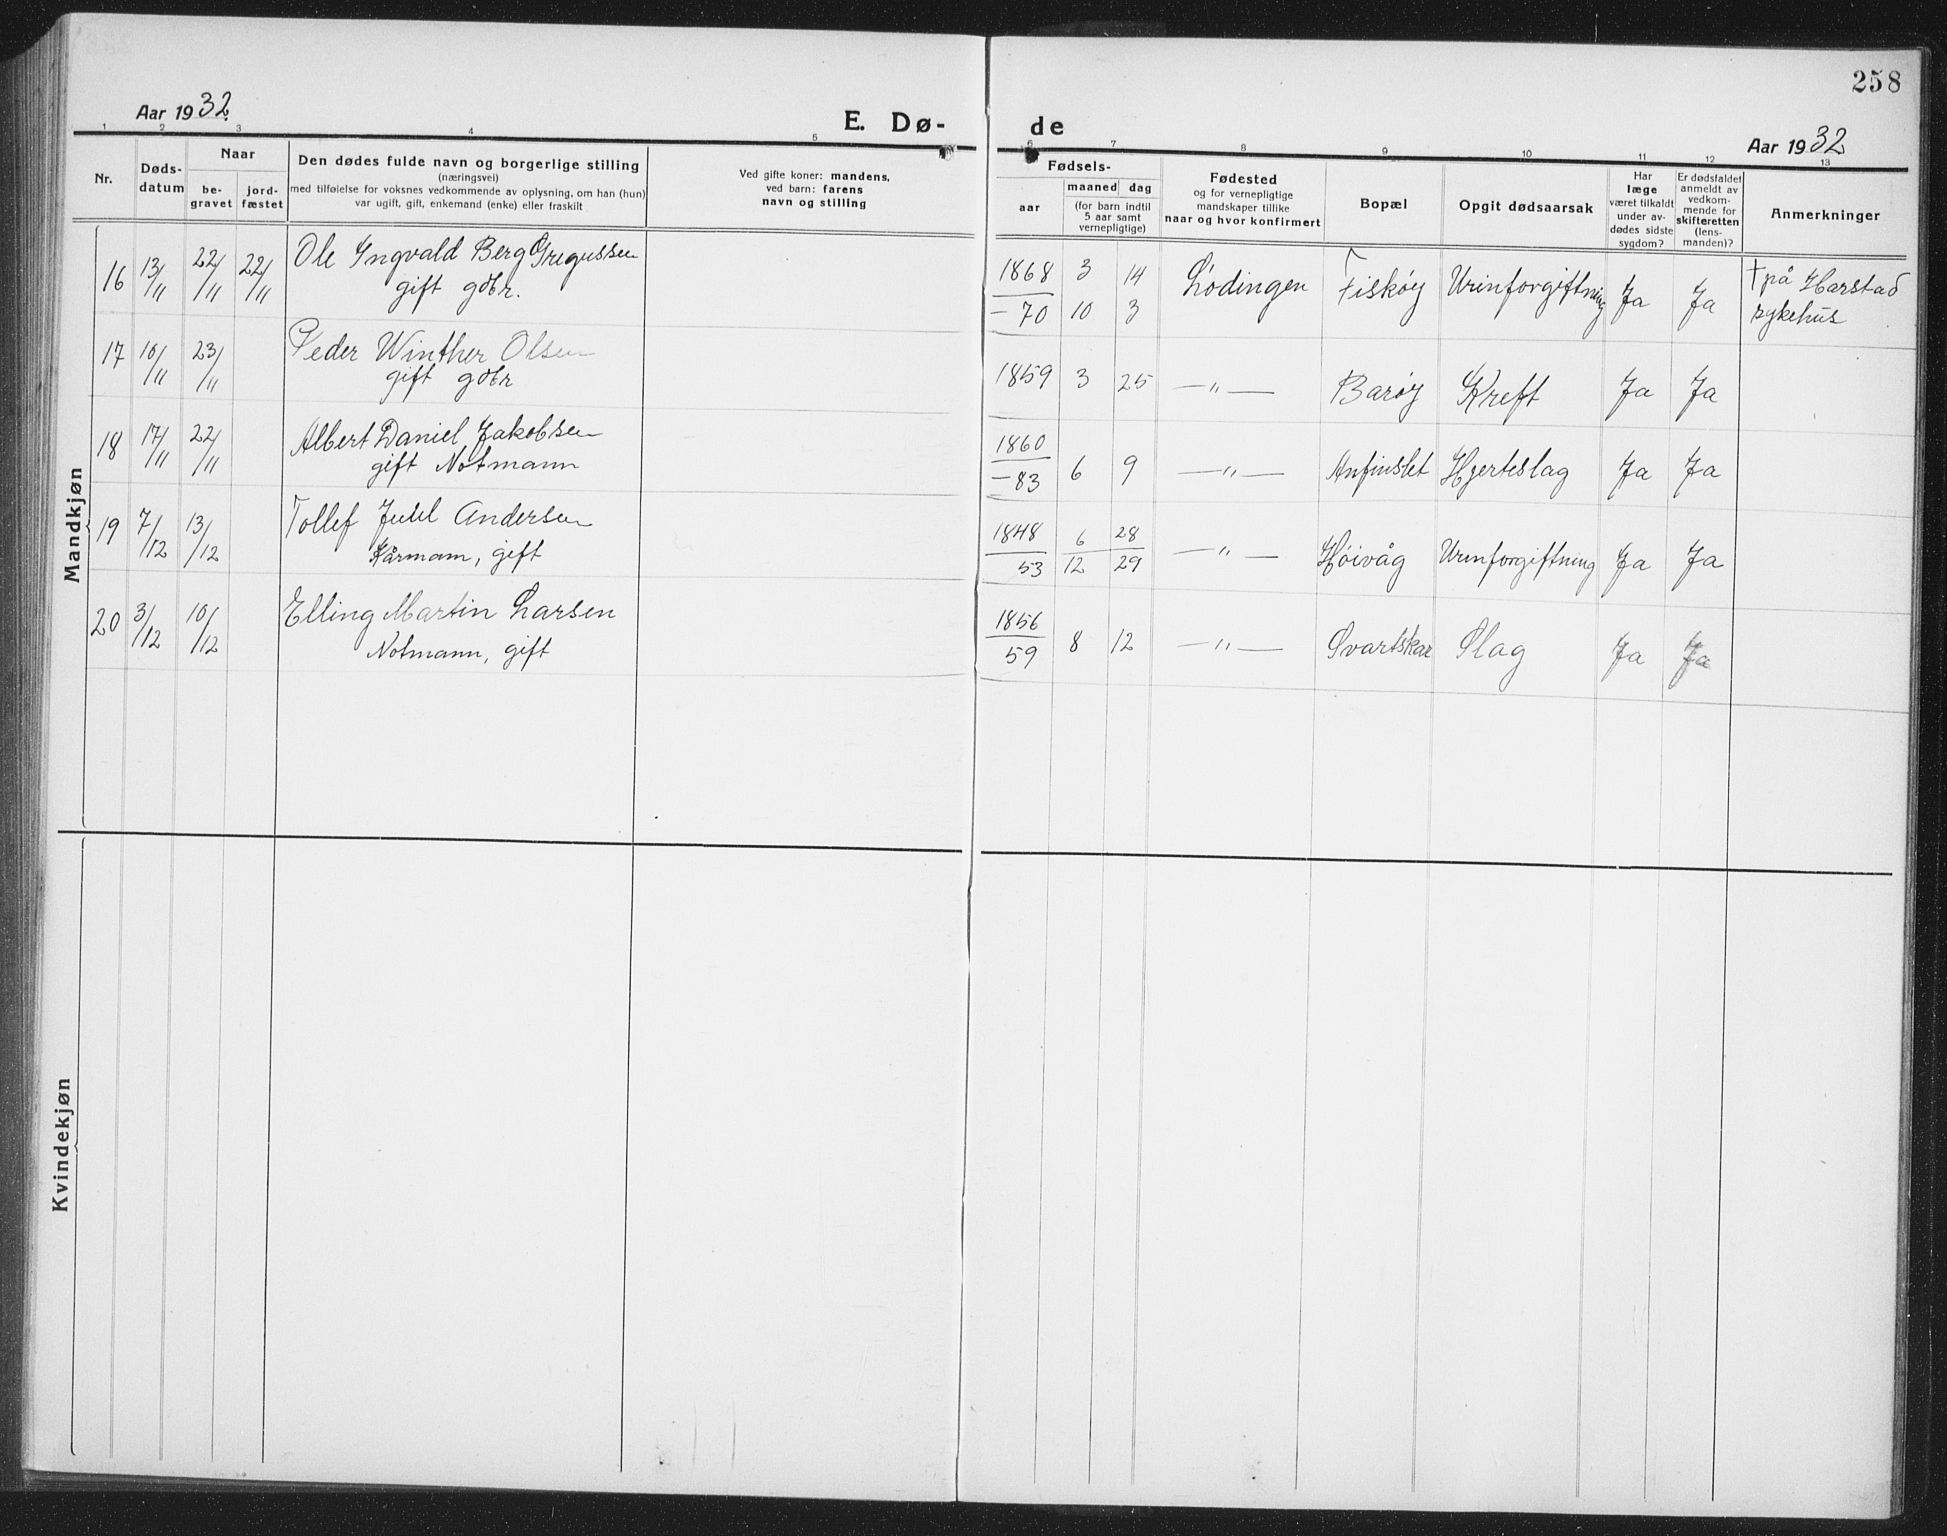 258
Aar 1932.
E. Dø-
de
Aar 1932
1 2 3 4 5 6 7 8 9 10 11 12 13
Nr.
Døds-
datum
Naar
be-
gravet
jord-
fæstet
Den dødes fulde navn og borgerlige stilling
(næringsvei)
med tilføielse for voksnes vedkommende av oplysning, om han (hun)
var ugift, gift, enkemand (enke) eller fraskilt
Ved gifte koner: mandens,
ved barn: farens
navn og stilling
Fødsels-
aar
maaned dag
(for barn indtil
5 aar samt
vernepligtige)
Fødested
og for vernepligtige
mandskaper tillike
naar og hvor konfirmert
Bopæl
Opgit dødsaarsak
Har
læge
været tilkaldt
under av-
dødes sidste
sygdom?
Er dødsfaldet
anmeldt av
vedkom-
mende for
skifteretten
(lens-
manden)?
Anmerkninger
Mandkjøn
16 13/11 22/11 22/11 Ole Ingvald Berg Gregussen 1868 3 14 Lødingen Fiskøy Urinforgiftning Ja Ja † på Harstad
gift gdbr. -70 10 3 sykehus
17 10/11 23/11 Peder Winther Olsen 1859 3 25 —"— Barøy Kreft Ja Ja
gift gdbr
18 17/11 22/11 Albert Daniel Jakobsen 1860 6 9 —"— Anfinslet Hjerteslag Ja Ja
gift Notmann -83
19 7/12 13/12 Tollef Juhl Andersen 1848 6 28 —"— Høivåg Urinforgiftning Ja Ja
Kårmann, gift 53 12 29
20 3/12 10/12 Elling Martin Larsen 1856 8 12 —"— Svartskar Slag Ja Ja
Notmann, gift 59
Kvindekjøn